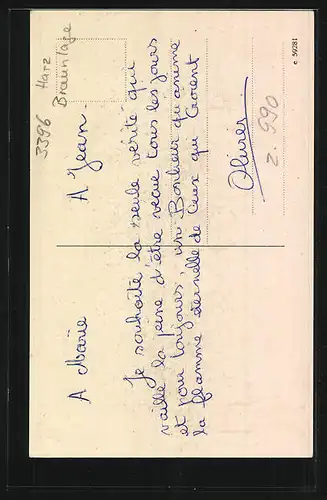 3396 Harz
Braunlage
A Marie A Jean.
Je souhaite la seule vérité qui
vaille la peine d'être vécue tous les jours
et pour toujours, un Bonheur qu'anime
la flamme éternelle de Ceux qui Croient
Olivier.
2.990
c 59281